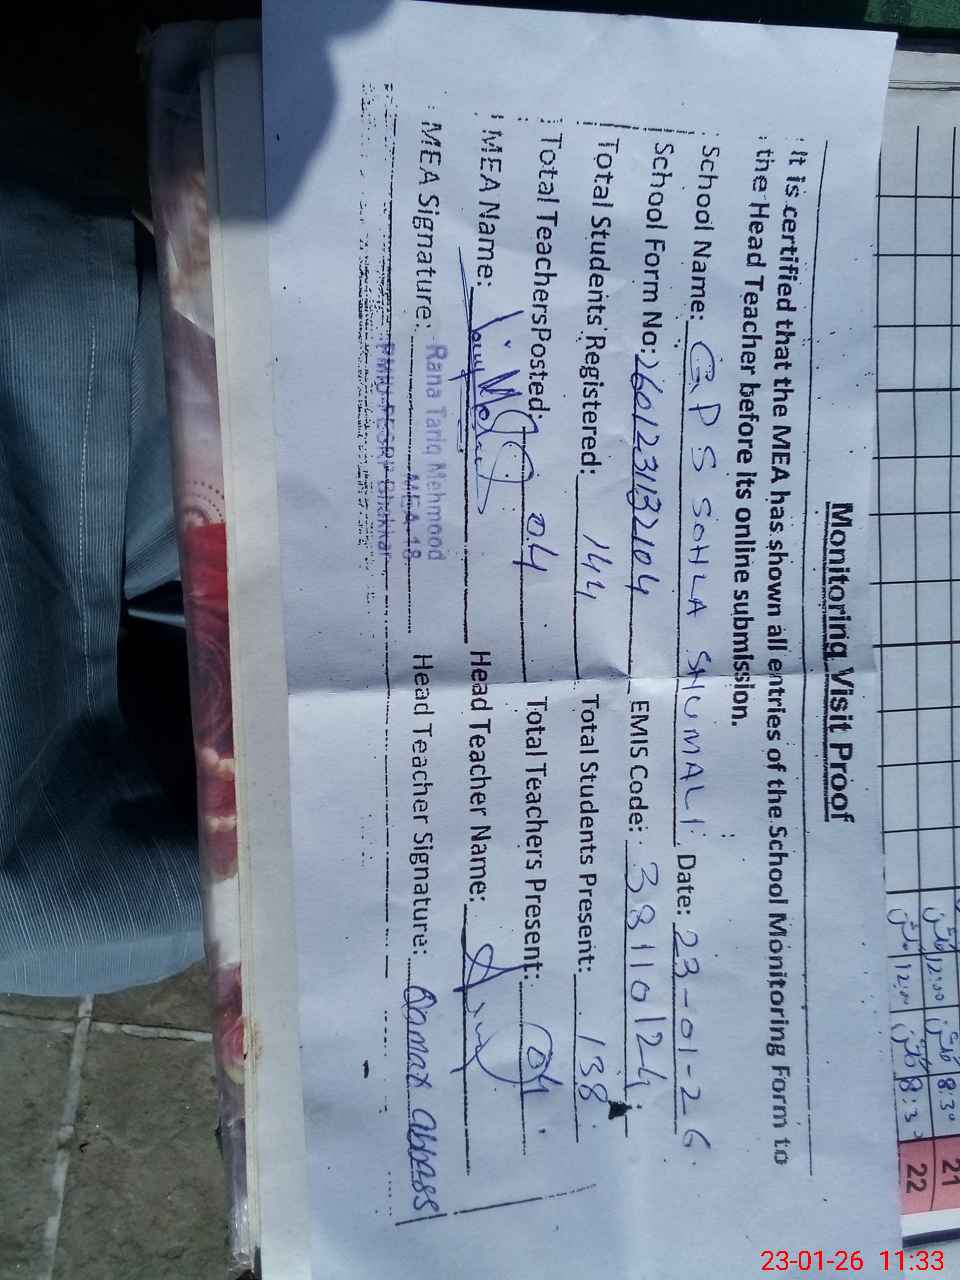 Monitoring Visit Proof
It is certified that the MEA has shown all entries of the School Monitoring Form to
the Head Teacher before its online submission.
School Name: GPS SOHLA SHUMALI Date: 23-01-26
School Form No: 2601231132104 EMIS Code: 38110124
Total Students Registered: 144 Total Students Present: 138
Total Teachers Posted: 04 Total Teachers Present: 04
MEA Name: Head Teacher Name:
MEA Signature: Rana Tariq Mehmood Head Teacher Signature: Qamar Abbass
MEA-18
PMIU-PESRP Bhakkar
12:00 8:30 21
12:00 8:30 22
23-01-26 11:33